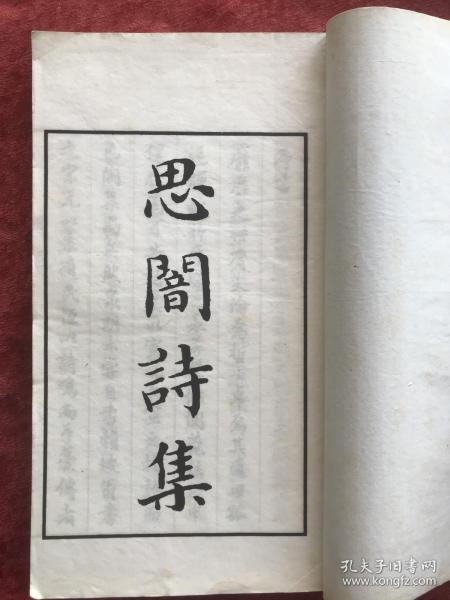 思闇詩集
孔夫子旧书网
www.kongfz.com